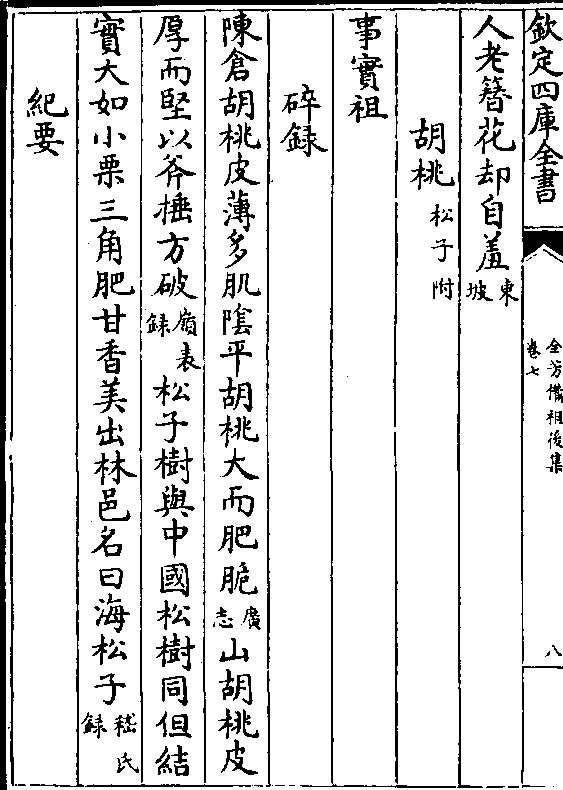 欽定四庫全書
全芳備祖後集
卷七
八
人老簪花却自羞東坡
胡桃松子附
事實祖
碎録
陳倉胡桃皮薄多肌隂平胡桃大而肥脆廣志山胡桃皮
厚而堅以斧椎方破嶺表録松子樹與中國松樹同但結
實大如小栗三角肥甘香美出林邑名曰海松子嵇氏録
紀要